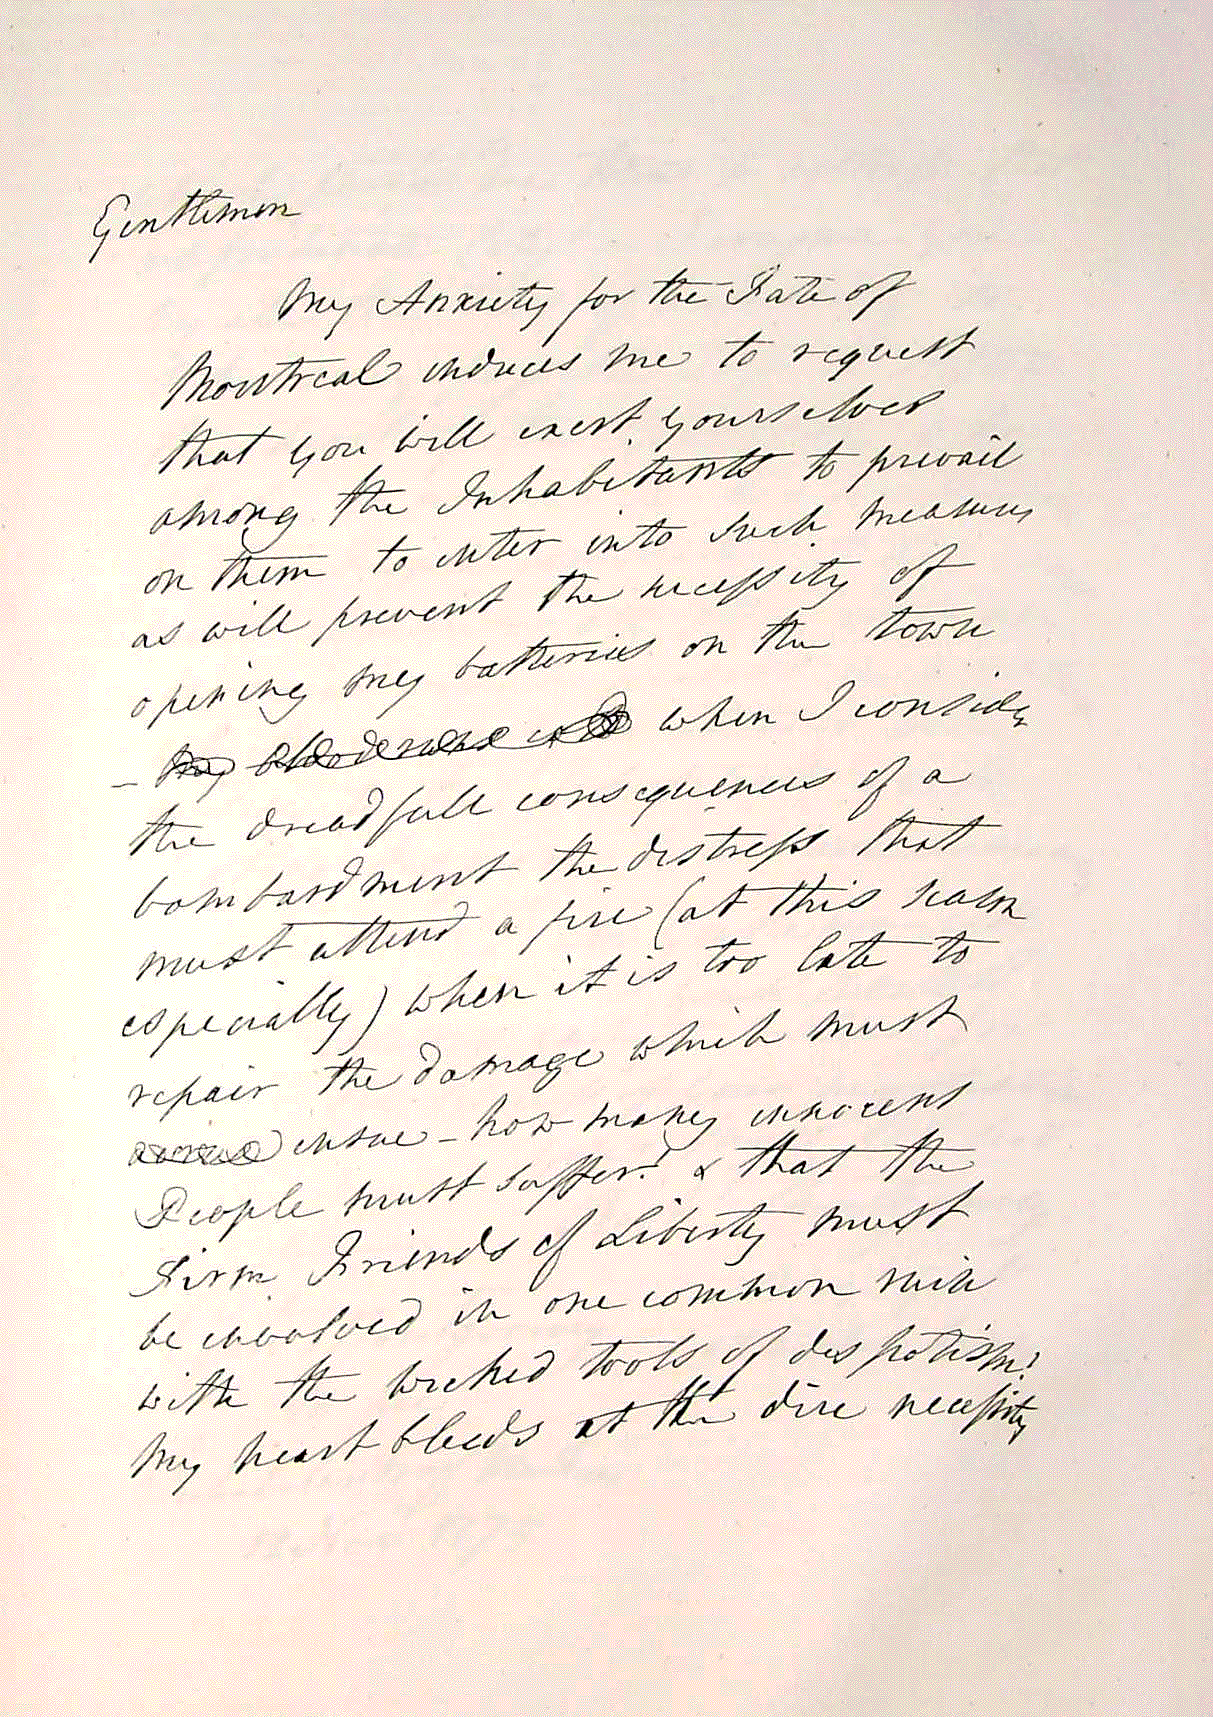 Gentlemen
My Anxiety for the Fate of
Montreal induces me to request
that you will exert yourselves
among the Inhabitants to prevail
on them to enter into such measures
as will prevent the necessity of
opening my batteries on the town
– My when I consider
the dreadfull consequences of a
bombardment the distress that
must attend a fire (at this season
especially) when it is too late to
repair the damage which must
ensue – how many innocent
People must suffer? & that the
Firm Friends of Liberty must
be involved in one common ruin
with the wicked tools of despotism!
My heart bleeds at the dire necessity